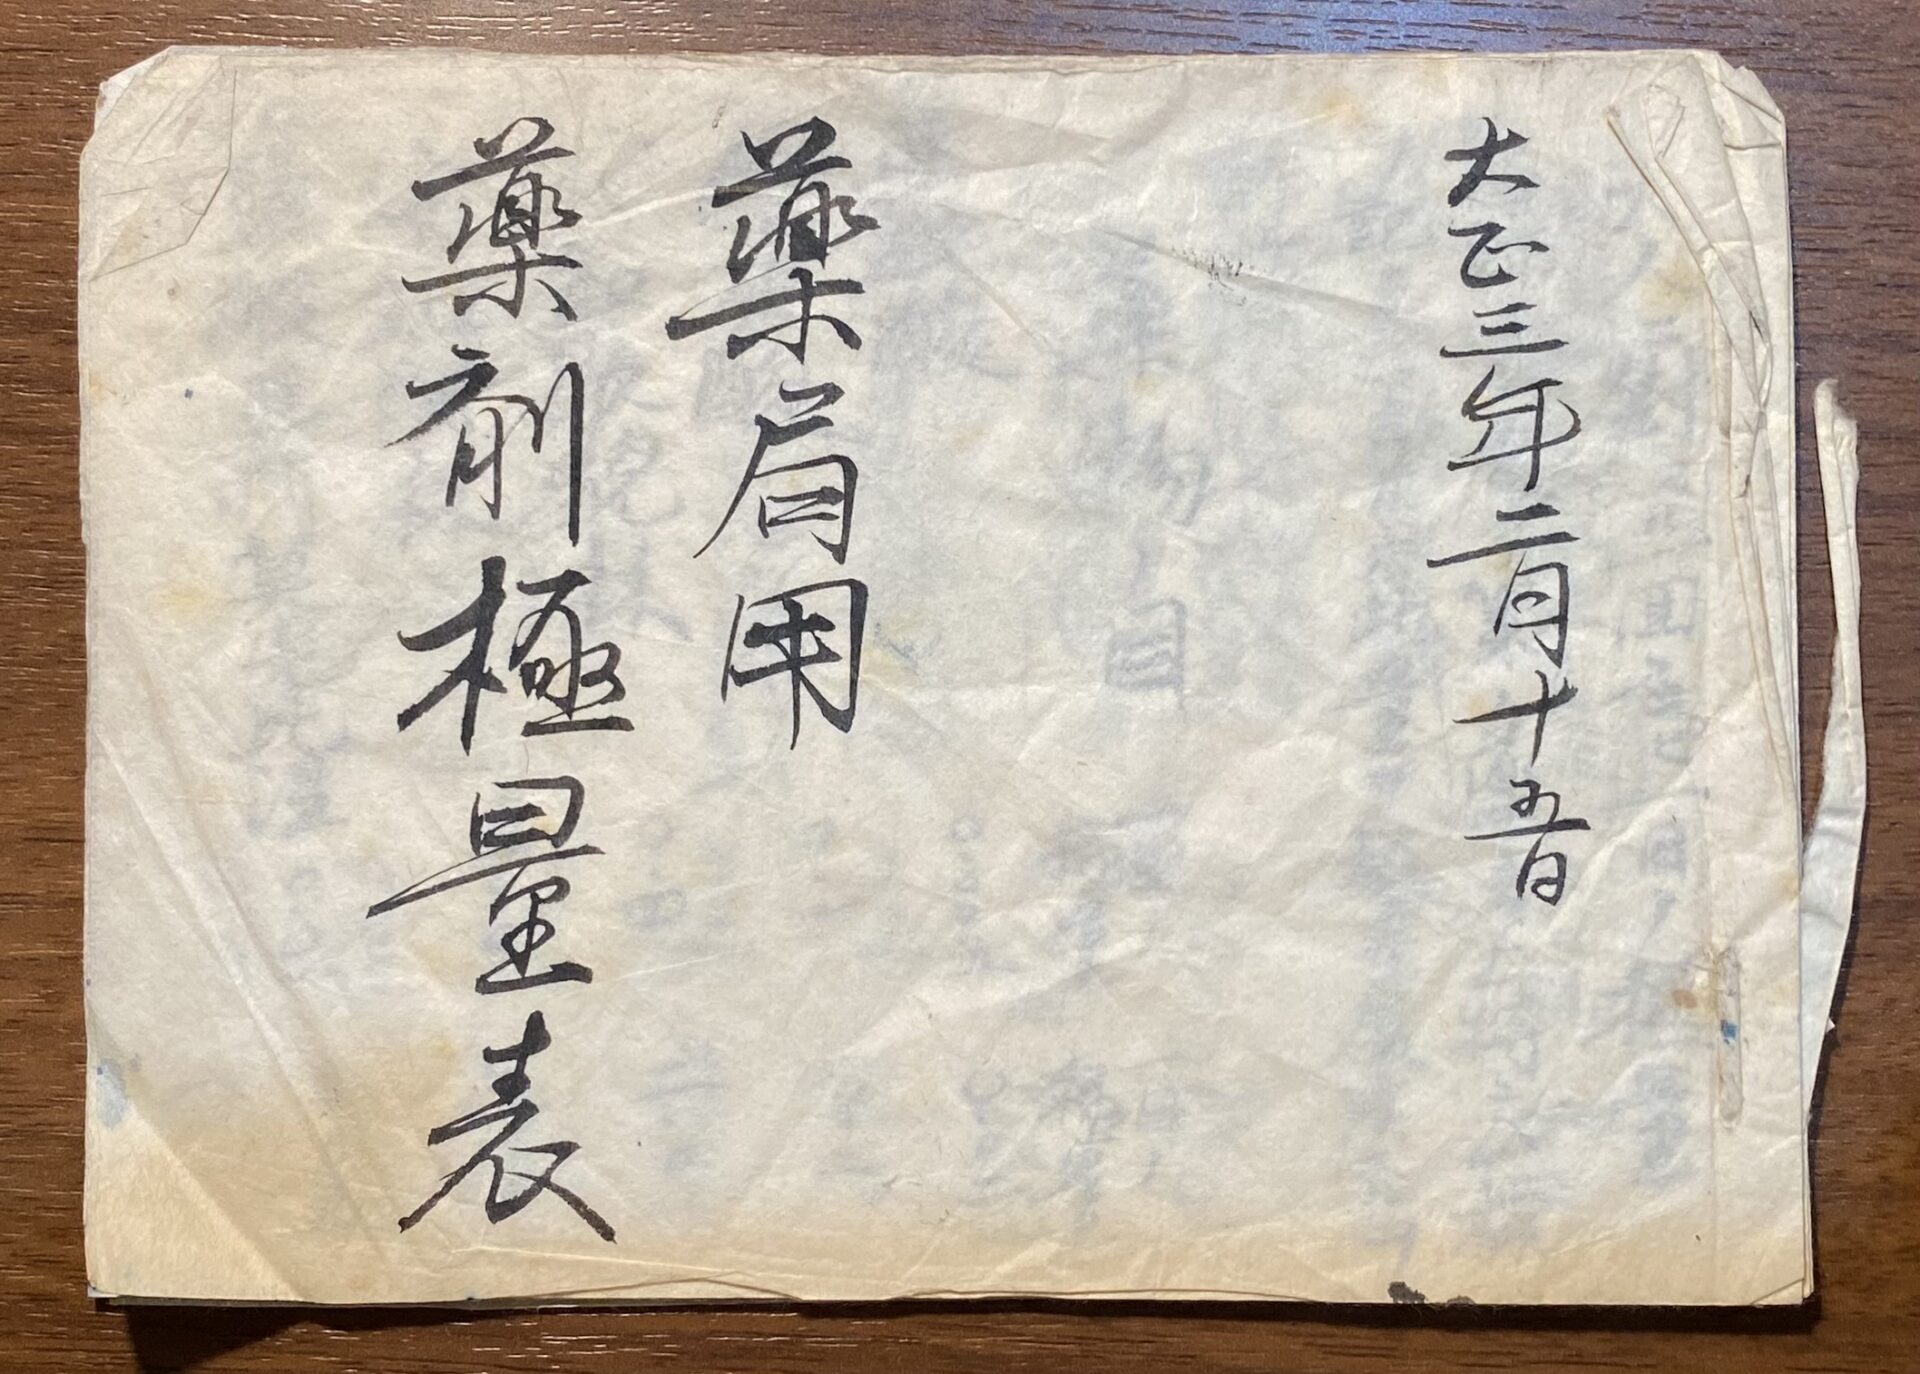 大正三年二月十五日
薬局用
薬剤極量表